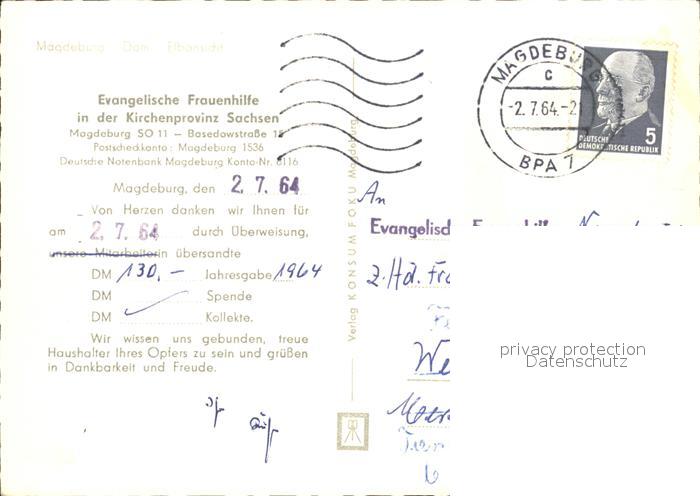 Magdeburg Dom Elbansicht
Evangelische Frauenhilfe
in der Kirchenprovinz Sachsen
Magdeburg SO 11 – Basedowstraße
Postscheckkonto: Magdeburg 1536
Deutsche Notenbank Magdeburg Konto-Nr. 8116
Magdeburg, den 2. 7. 64
Von Herzen danken wir Ihnen für
am 2. 7. 64 durch Überweisung,
unsere Mitarbeiterin übersandte
DM 130,– Jahresgabe 1964
DM Spende
DM Kollekte.
Wir wissen uns gebunden, treue
Haushalter Ihres Opfers zu sein und grüßen
in Dankbarkeit und Freude.
Verlag KONSUM FOKU Magdeburg
MAGDEBURG
c
-2.7.64.-21
BPA 7
5
DEUTSCHE
DEMOKATISCHE REPUBLIK
An
Evangelisch
z. Hd. Fra
We
privacy protection
Datenschutz